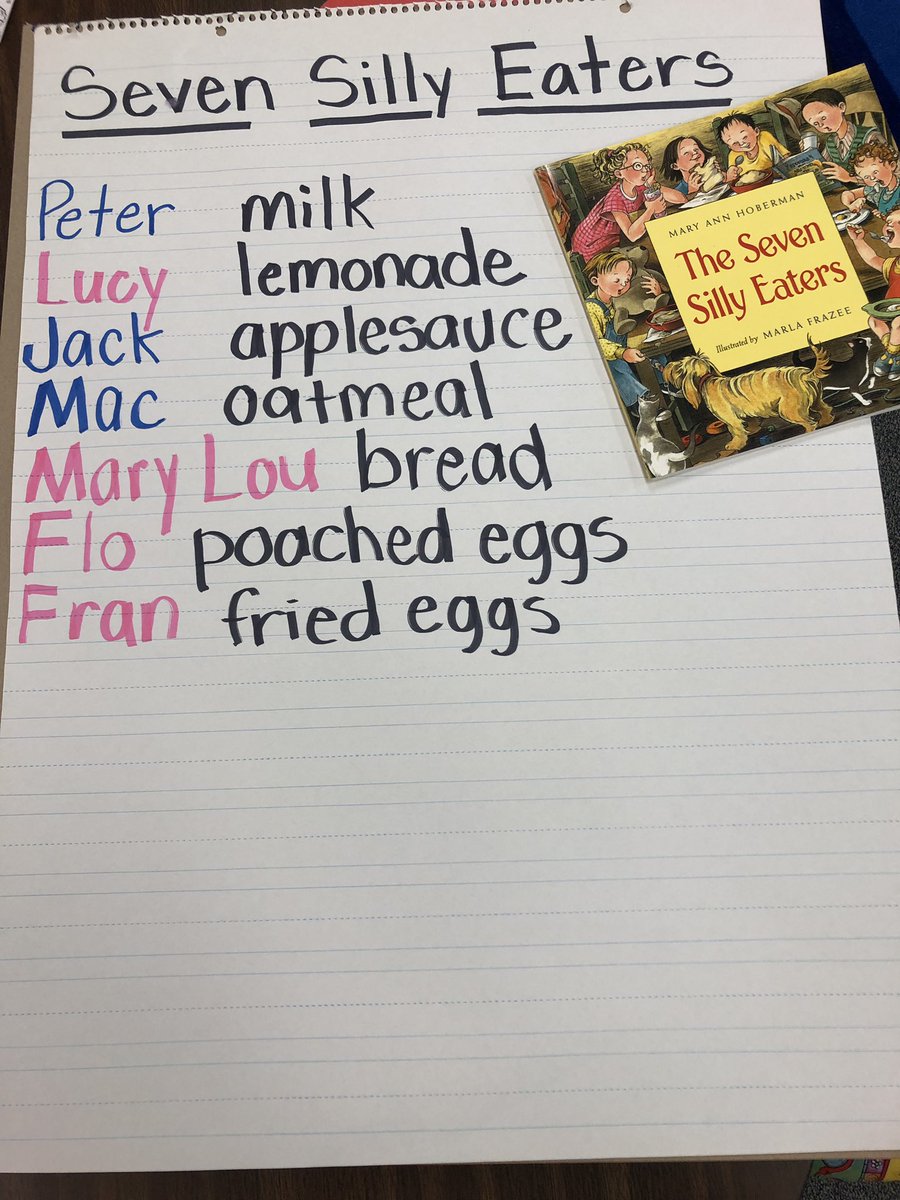 Seven Silly Eaters
Peter milk
Lucy lemonade
Jack applesauce
Mac oatmeal
Mary Lou bread
Flo poached eggs
Fran fried eggs
MARY ANN HOBERMAN
The Seven
Silly Eaters
Illustrated by MARLA FRAZEE